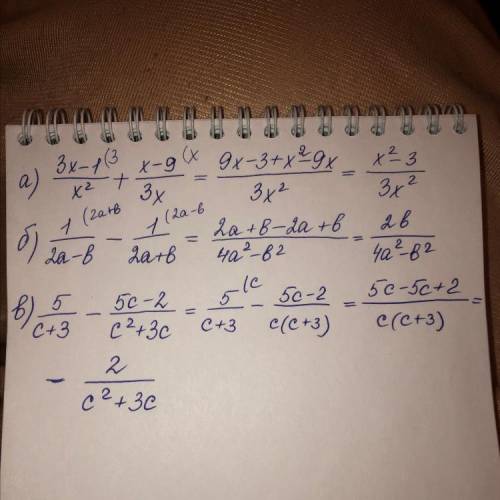 а) (3x-1)/x² (3 + (x-9)/3x (x = (9x-3+x²-9x)/3x² = (x²-3)/3x²
б) 1/(2a-b) (2a+b - 1/(2a+b) (2a-b = (2a+b-2a+b)/(4a²-b²) = 2b/(4a²-b²)
в) 5/(c+3) - (5c-2)/(c²+3c) = 5/(c+3) (c - (5c-2)/(c(c+3)) = (5c-5c+2)/(c(c+3)) =
- 2/(c²+3c)